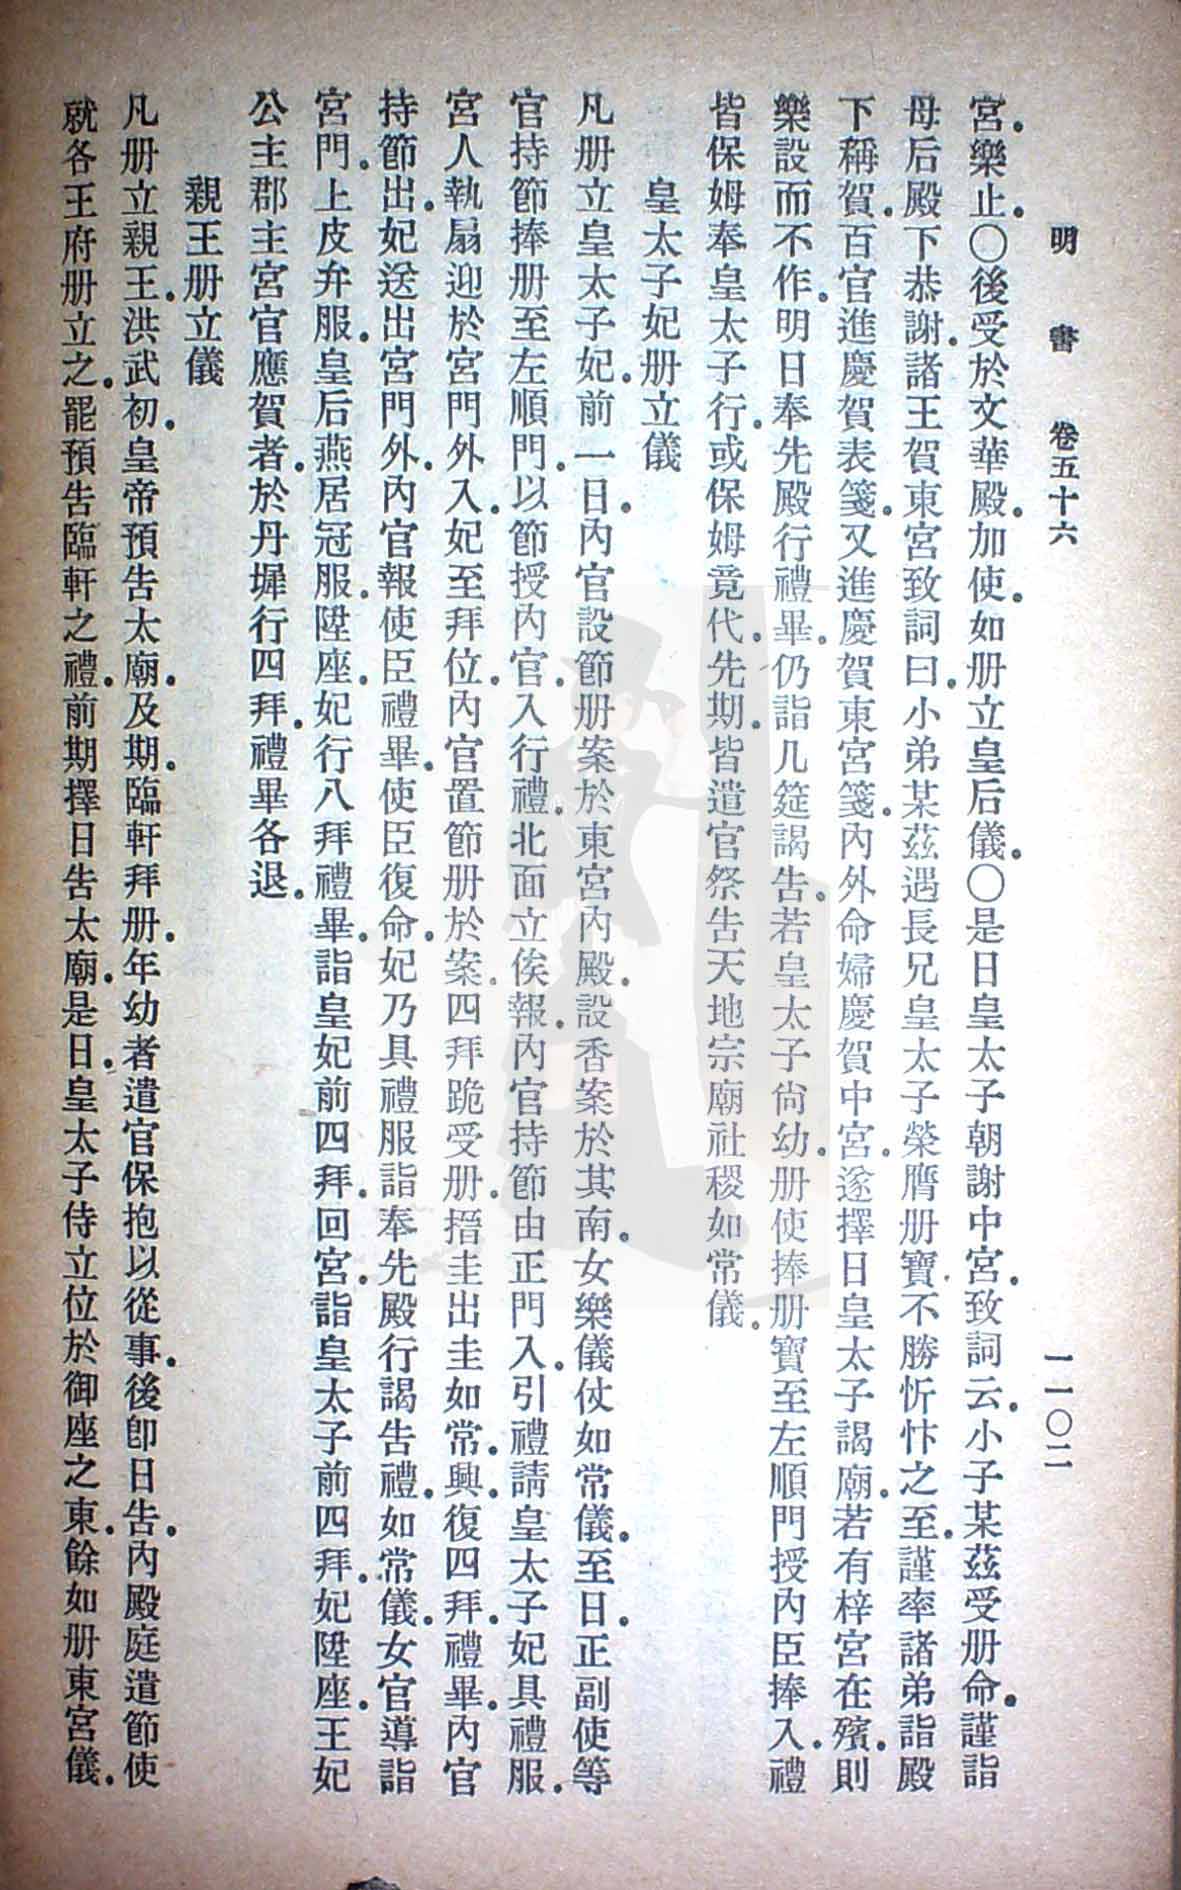 明書 卷五十六 一一〇二
宮。樂止。〇後受於文華殿。加使。如册立皇后儀。〇是日皇太子朝謝中宮。致詞云。小子某茲受册命。謹詣
母后殿下恭謝。諸王賀東宮致詞曰。小弟某茲遇長兄皇太子榮膺册寶。不勝忻忭之至。謹率諸弟詣殿
下稱賀。百官進慶賀表箋。又進慶賀東宮箋。內外命婦慶賀中宮。遂擇日皇太子謁廟。若有梓宮在殯。則
樂設而不作。明日奉先殿行禮畢。仍詣几筵謁告。若皇太子尙幼。册使捧册寶至左順門授內臣捧入。禮
皆保姆奉皇太子行。或保姆竟代。先期。皆遣官祭告天地宗廟社稷如常儀。
皇太子妃册立儀
凡册立皇太子妃。前一日。內官設節册案於東宮內殿。設香案於其南。女樂儀仗如常儀。至日。正副使等
官持節捧册至左順門。以節授內官。入行禮。北面立俟報。內官持節由正門入。引禮請皇太子妃具禮服。
宮人執扇迎於宮門外。入。妃至拜位。內官置節册於案。四拜跪受册。搢圭出圭如常。興。復四拜。禮畢。內官
持節出。妃送出宮門外。內官報使臣禮畢。使臣復命。妃乃具禮服詣奉先殿行謁告禮。如常儀。女官導詣
宮門。上皮弁服。皇后燕居冠服。陞座。妃行八拜禮畢。詣皇妃前四拜。回宮。詣皇太子前四拜。妃陞座。王妃
公主郡主宮官應賀者。於丹墀行四拜。禮畢各退。
親王册立儀
凡册立親王。洪武初。皇帝預告太廟。及期。臨軒拜册。年幼者遣官保抱以從事。後卽日告。內殿庭遣節使
就各王府册立之。罷預告臨軒之禮。前期擇日告太廟。是日。皇太子侍立位於御座之東。餘如册東宮儀。